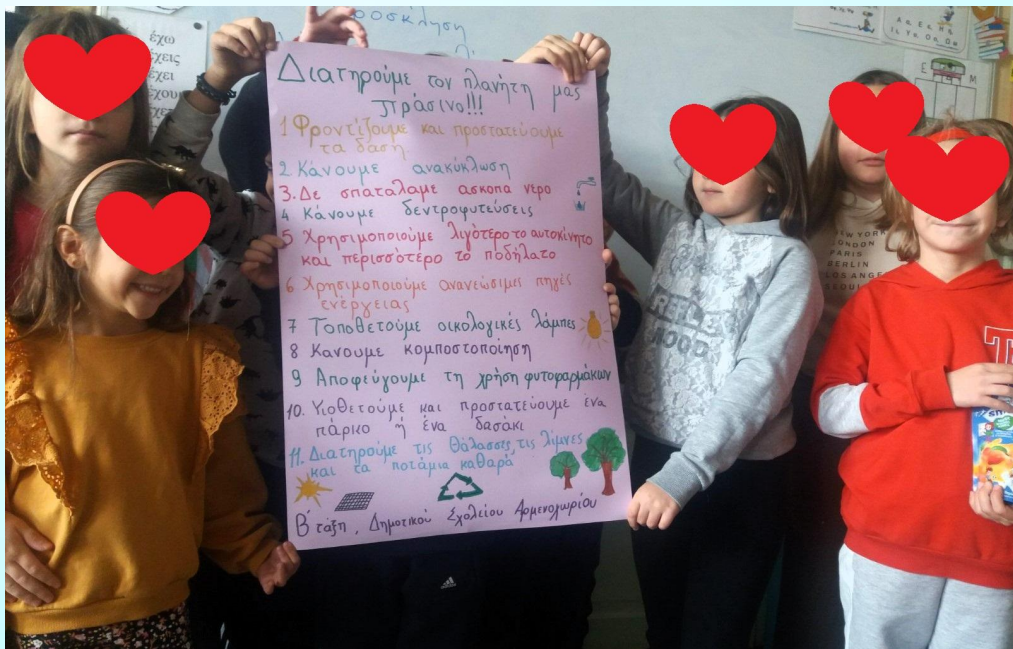 οσκληση
έχω
έχεις
έχει
έχου
Διατηρούμε τον πλανήτη μας
πράσινο!!!
1 Φροντίζουμε και προστατεύουμε
τα δάση
2 Κάνουμε ανακύκλωση
3. Δε σπαταλάμε ασκοπα νερο
4 Κάνουμε δεντροφυτεύσεις
5 Χρησιμοποιούμε λιγότερο το αυτοκίνητο
και περισσότερο το ποδήλατο
6 Χρησιμοποιούμε ανανεώσιμες πηγές
ενέργειας
7 Τοποθετούμε οικολογικές λάμπες
8 Κανουμε κομποστοποίηση
9 Αποφεύγουμε τη χρήση φυτοφαρμάκων
10. Υιοθετούμε και προστατεύουμε ένα
πάρκο ή ένα δασάκι
11. Διατηρούμε τις θάλασσες, τις λίμνες
και τα ποτάμια καθαρά
Β΄ τάξη, Δημοτικού Σχολείου Αρμενοχωρίου
NEW YORK
LONDON
PARIS
BERLIN
LOS ANGE
SEOUL
MOOD
adidas
E
M